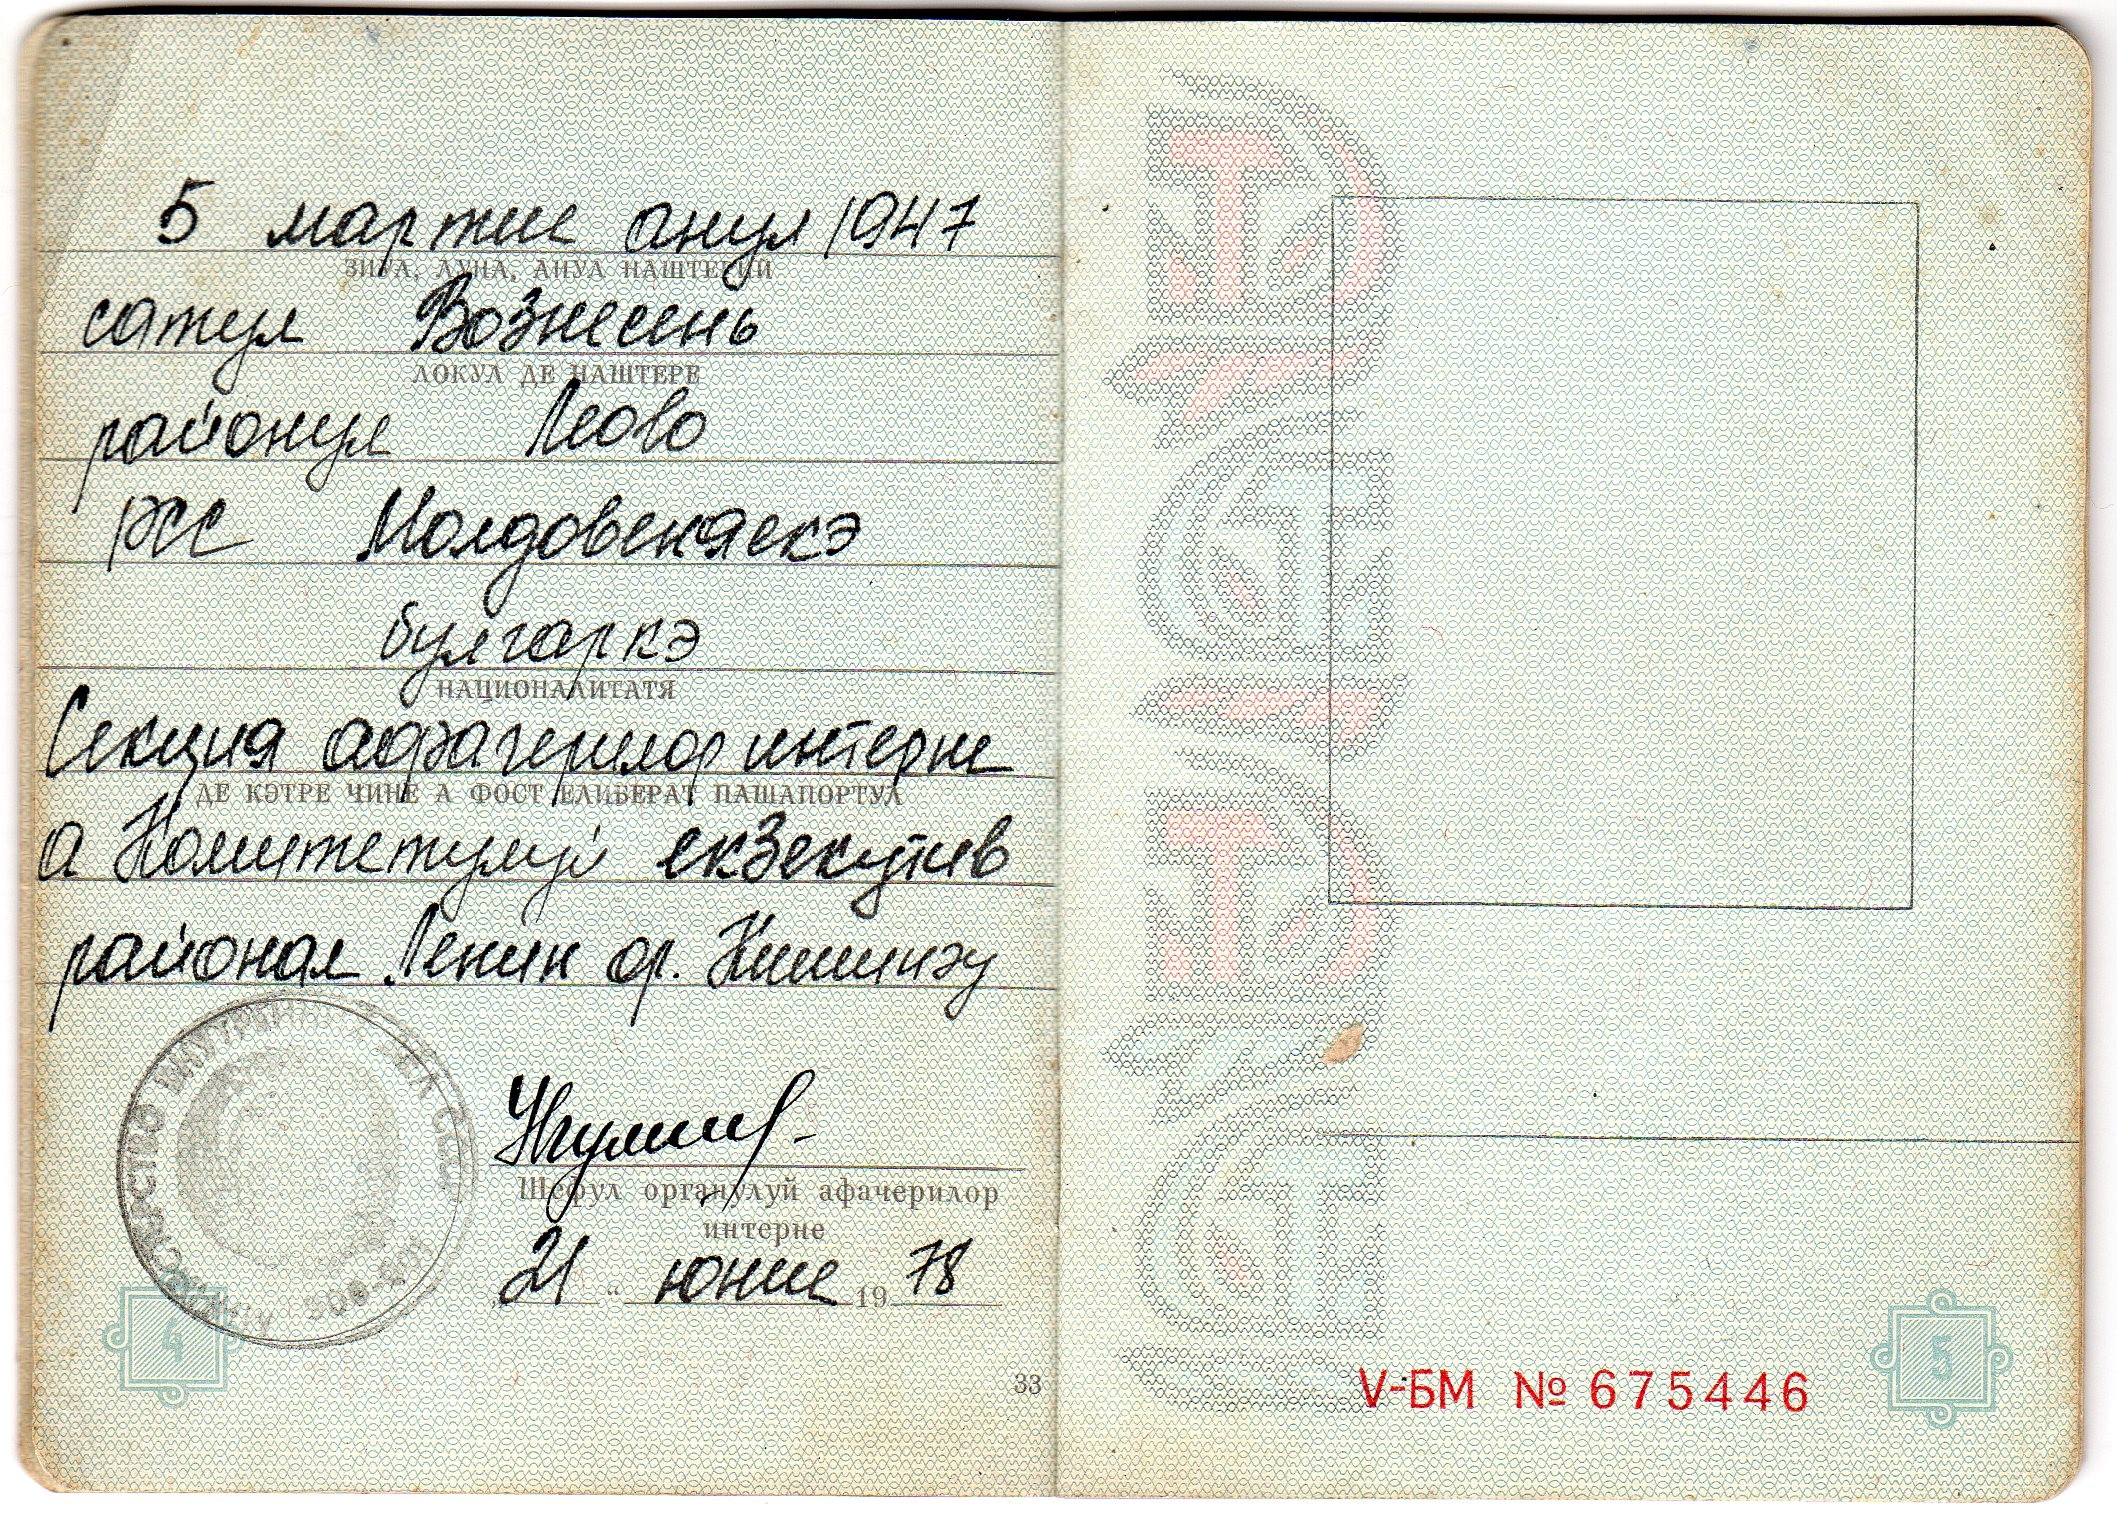 5 мартие анул 1947
ЗИУА, ЛУНА, АНУЛ НАШТЕРИЙ
сатул Вознесень
ЛОКУЛ ДЕ НАШТЕРЕ
районул Леово
РСС Молдовеняскэ
булгаркэ
НАЦИОНАЛИТАТЯ
Секция афачерилор интерне
ДЕ КЭТРЕ ЧИНЕ А ФОСТ ЕЛИБЕРАТ ПАШАПОРТУЛ
а Комитетулуй екзекутив
районал Ленин ор. Кишинэу
Шефул органулуй афачерилор
интерне
„21“ юние 1978
4
33
V-БМ № 675446
5